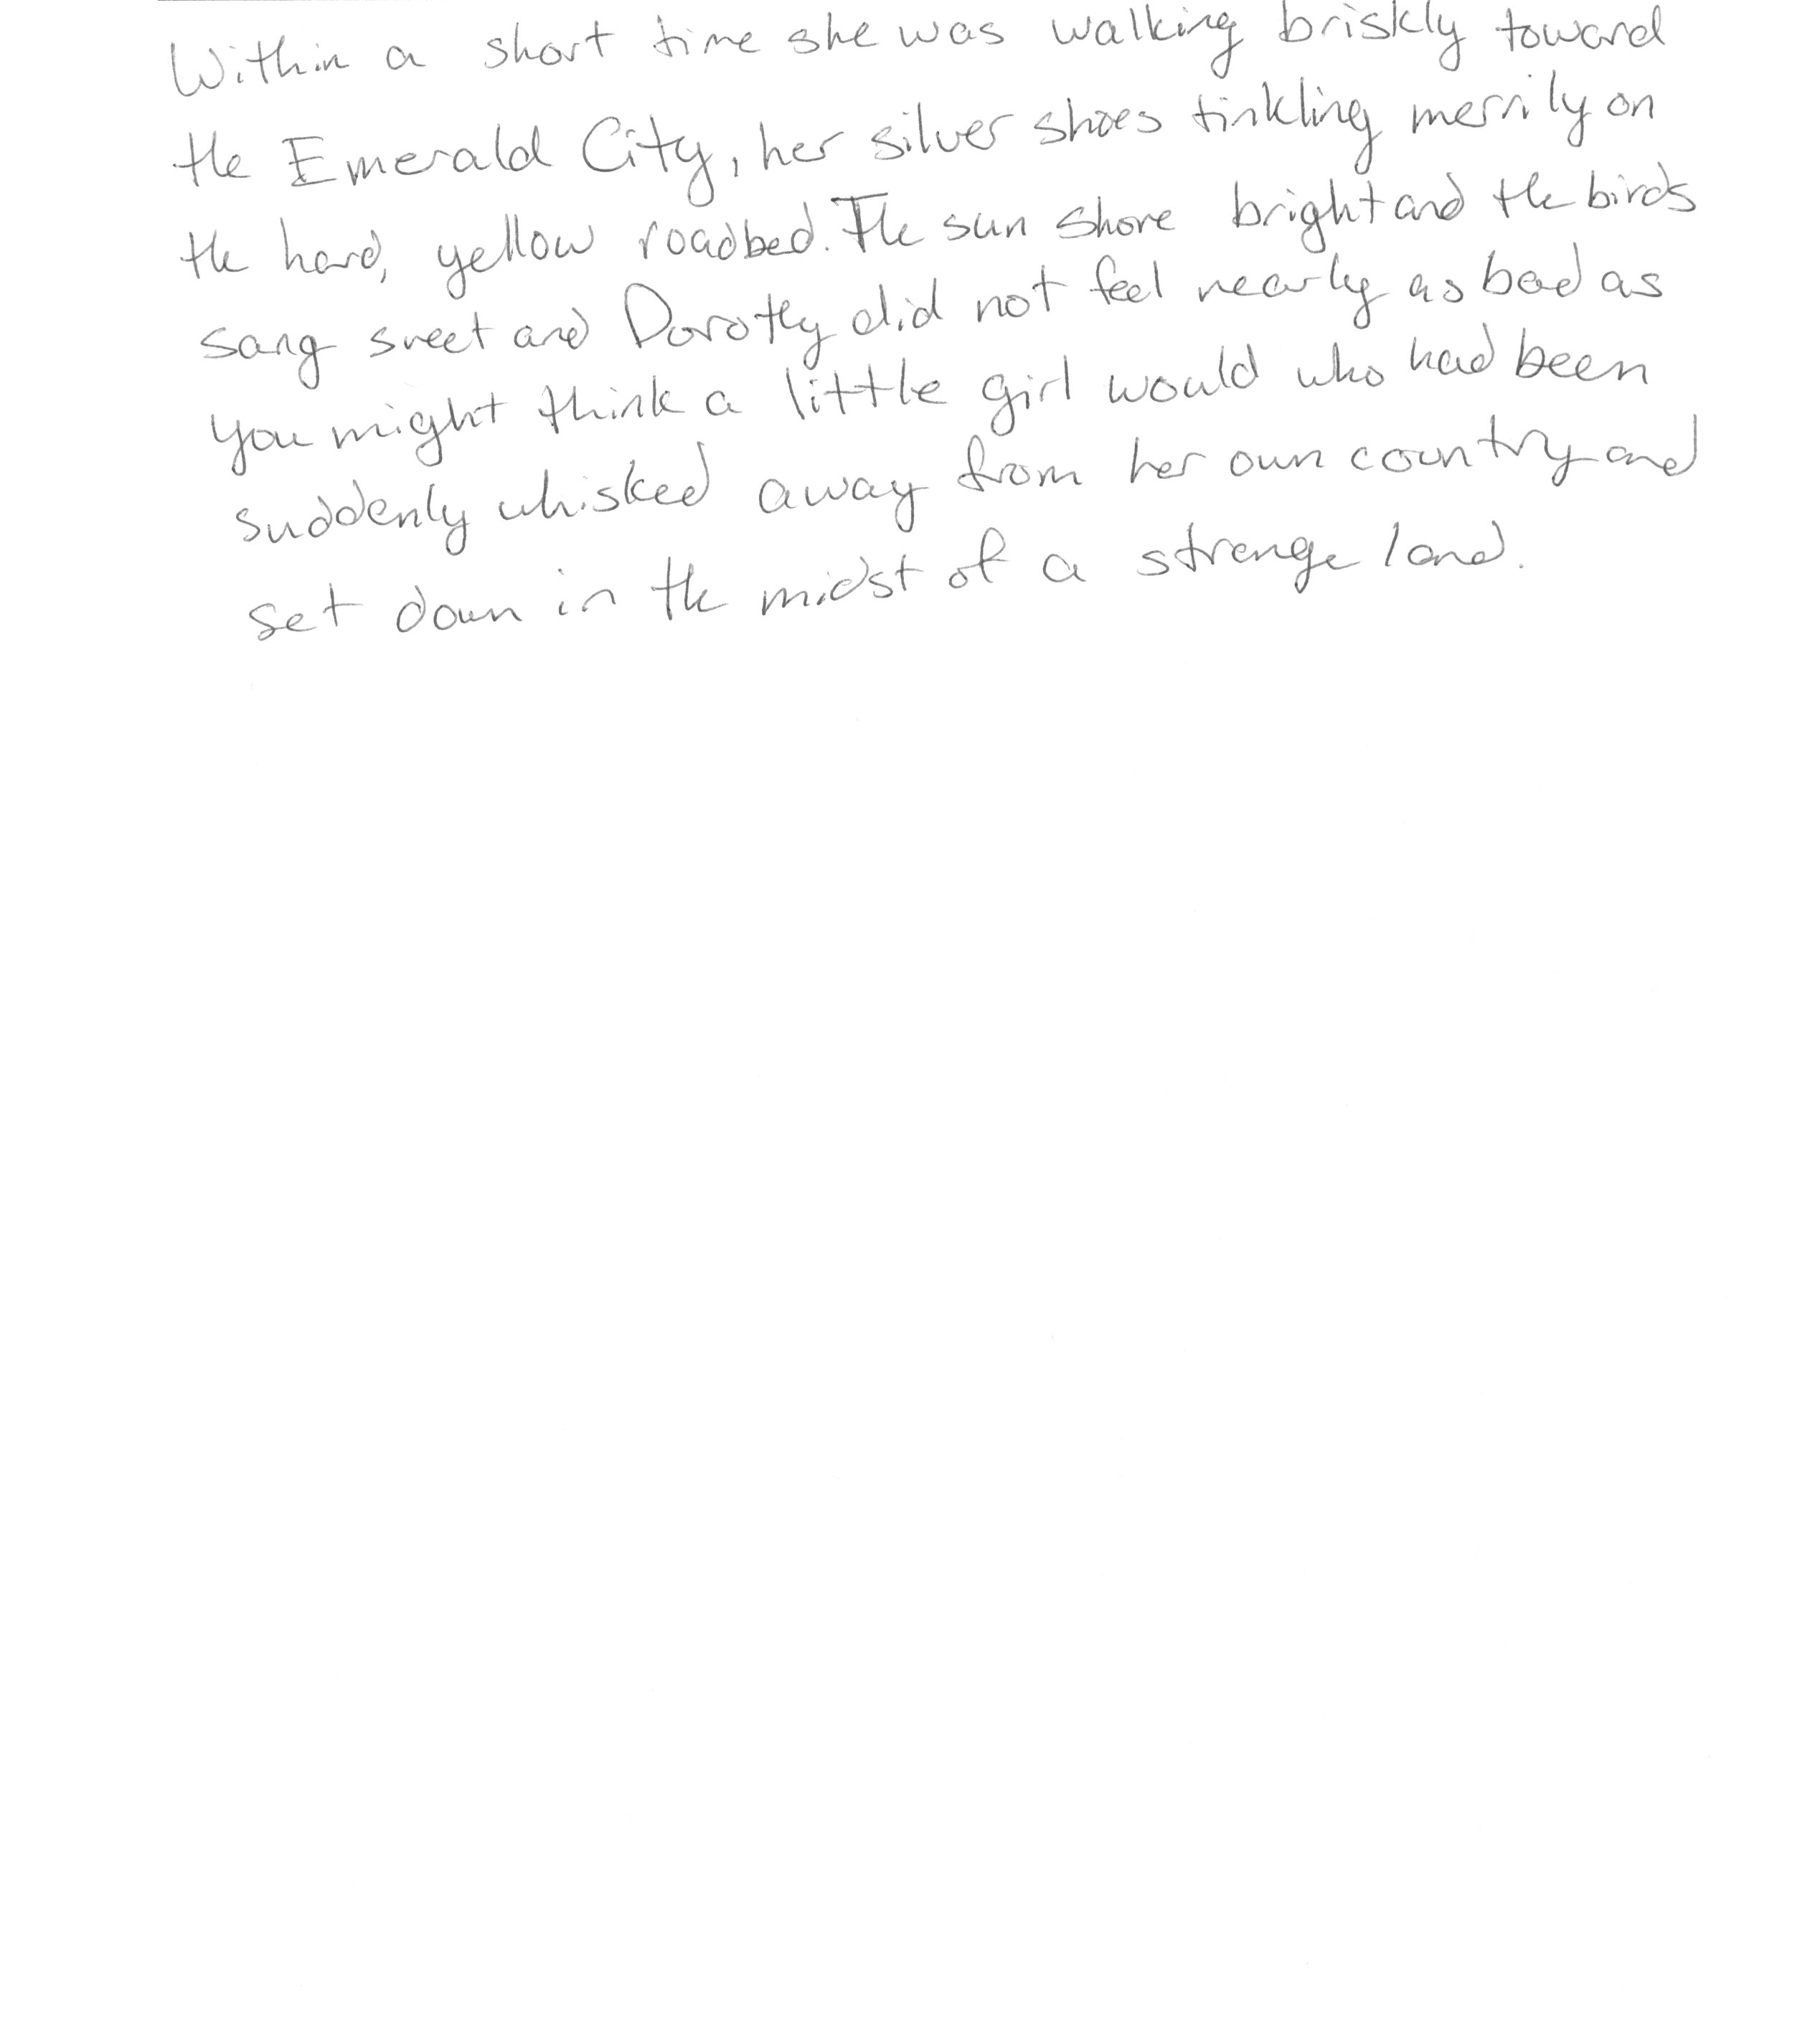 Within a short time she was walking briskly toward
the Emerald City, her silver shoes tinkling merrily on
the hard, yellow roadbed. The sun shone bright and the birds
sang sweet and Dorothy did not feel nearly as bad as
you might think a little girl would who had been
suddenly whisked away from her own country and
set down in the midst of a strange land.